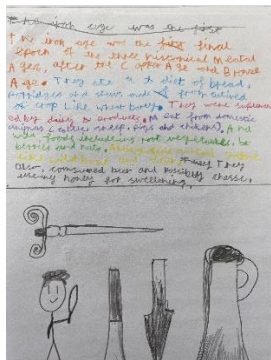 The iron age was the first
The iron age was the first final
epoch of the three historical Metal
Ages, after the Copper Age and Bronze
Age. They ate a diet of bread,
porridges and stews made from
of crop like wheat barley. They were
ed by dairy products, Meat from domestic
animals (cattle, sheep, pigs and chickens). And
wild foods including root vegetables,
berries and nuts.
like wild boar and deer. They
also consumed beer and possibly cheese,
using honey for sweetening.